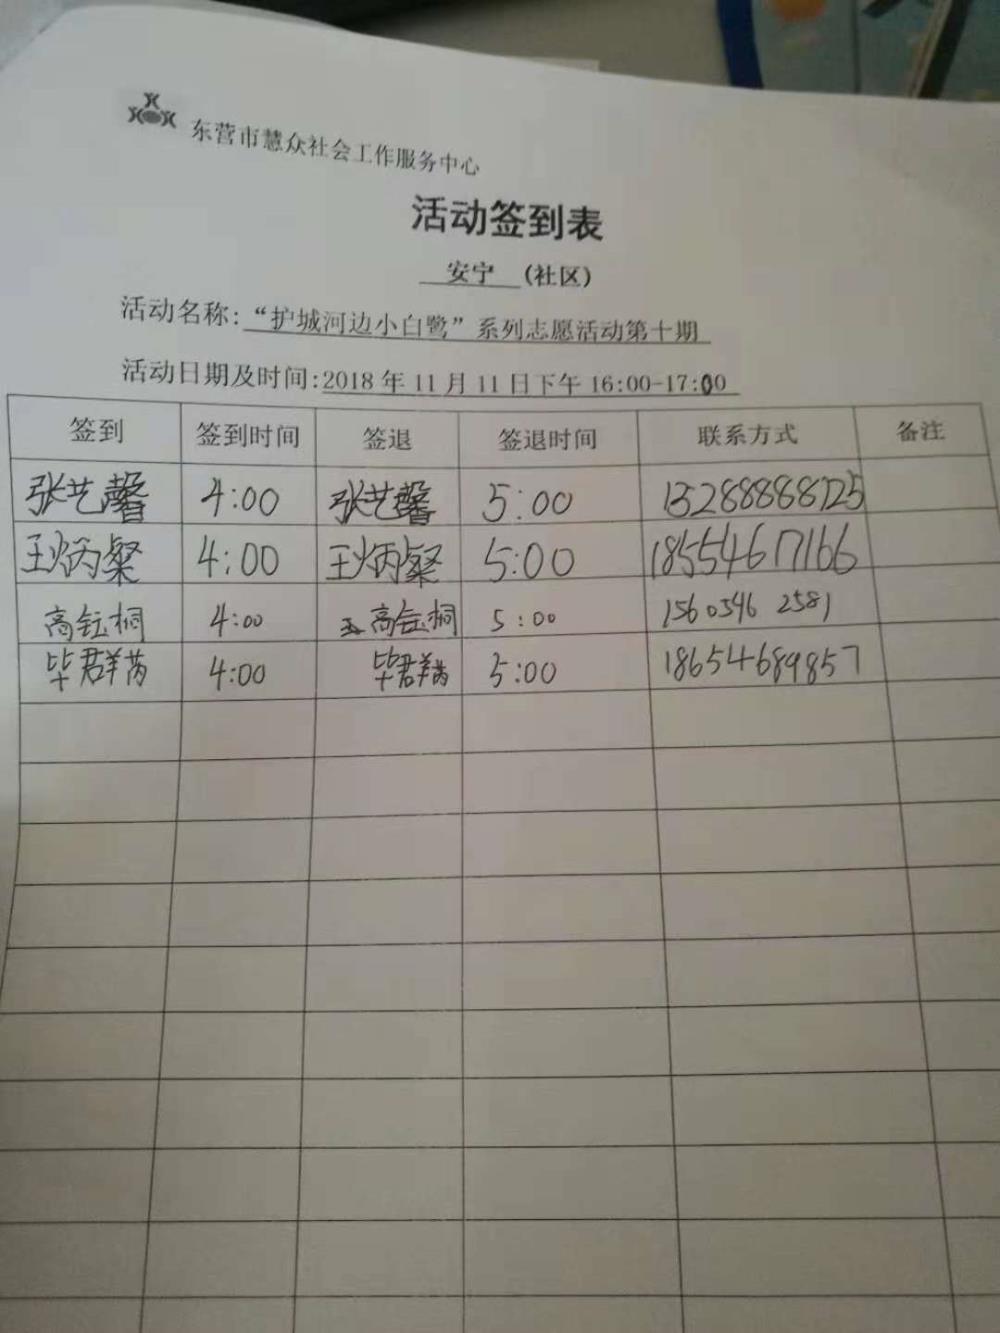 东营市慧众社会工作服务中心
活动签到表
安宁 (社区)
活动名称:“护城河边小白鹭”系列志愿活动第十期
活动日期及时间:2018年11月11日下午16:00-17:00
签到 签到时间 签退 签退时间 联系方式 备注
张艺馨 4:00 张艺馨 5:00 13288888725
王炳粲 4:00 王炳粲 5:00 18554617166
高钰桐 4:00 高钰桐 5:00 15603462581
毕群芮 4:00 毕群芮 5:00 18654689857